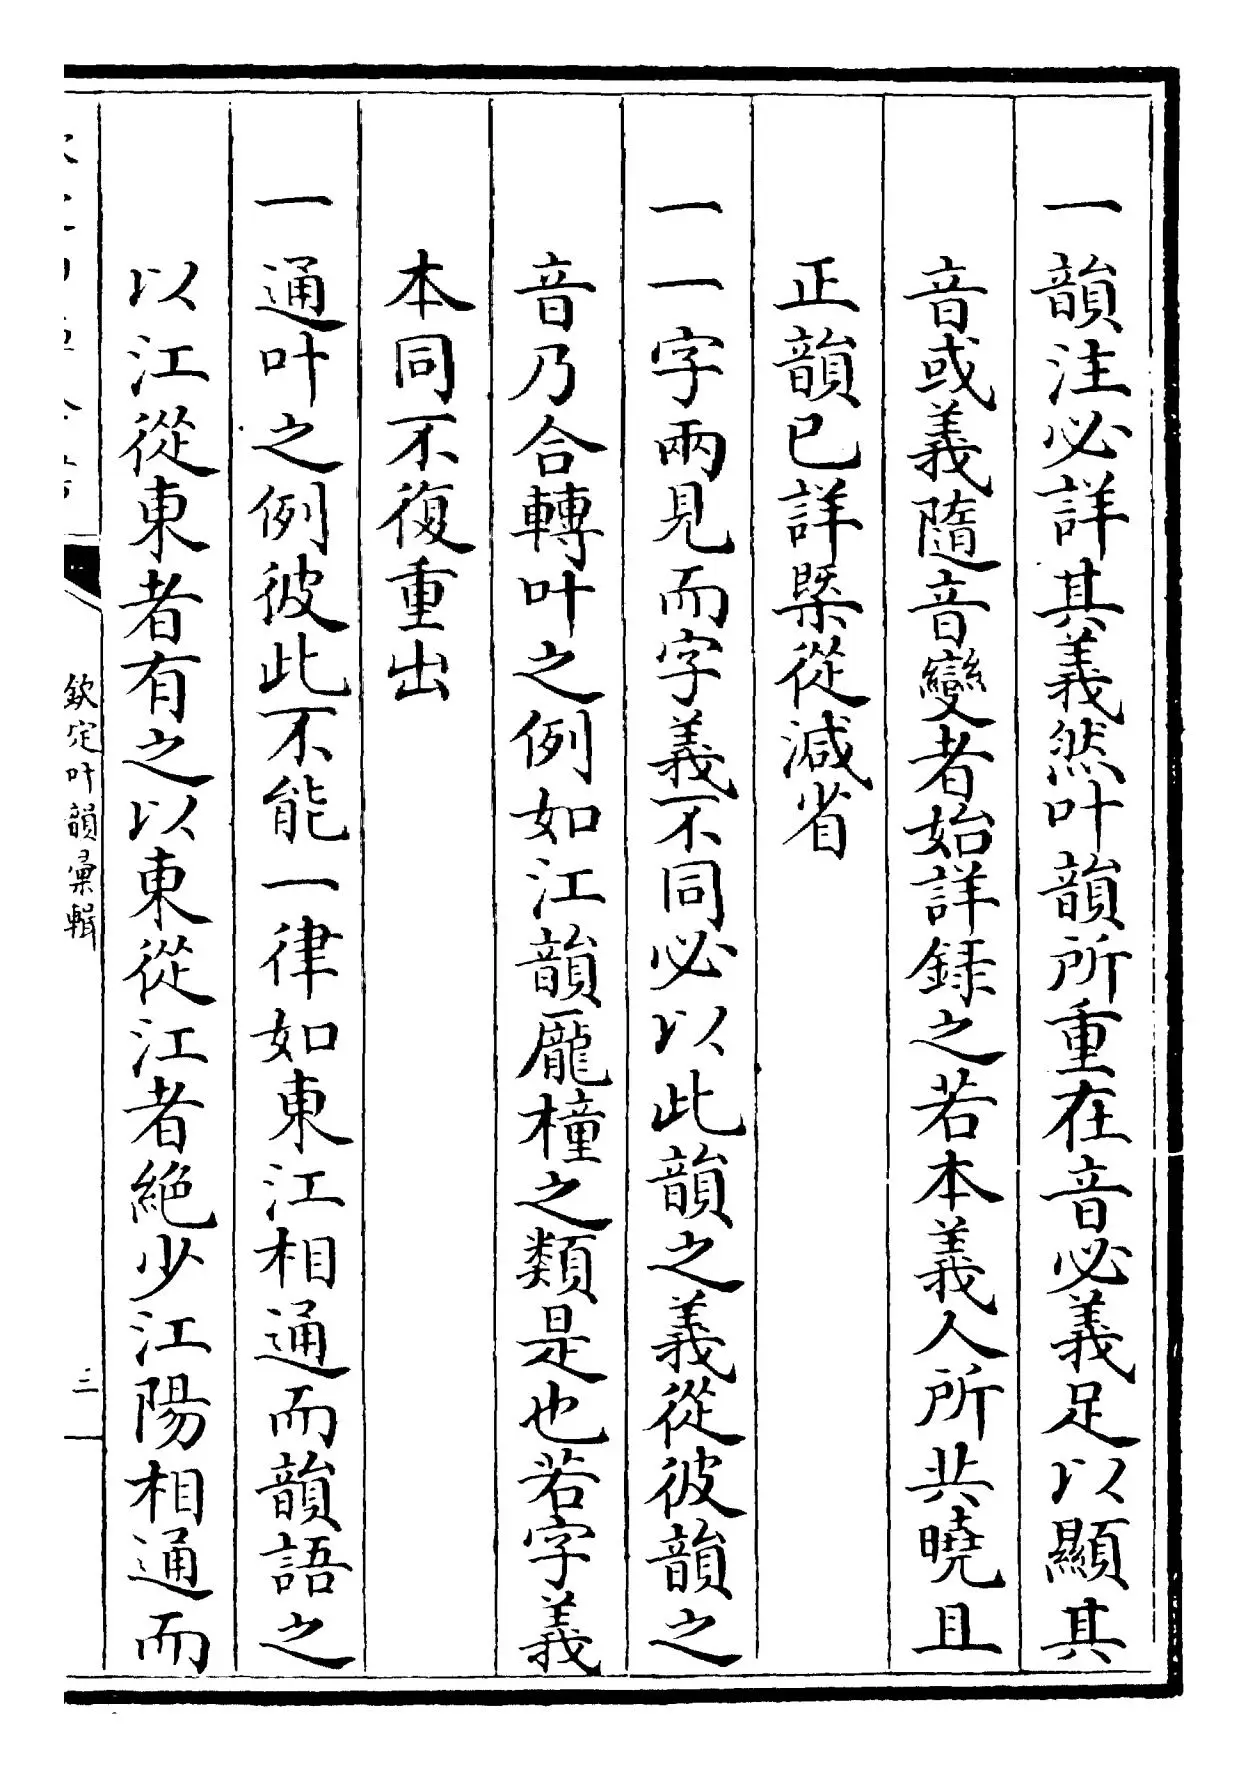 一韻注必詳其義然叶韻所重在音必義足以顯其
音或義隨音變者始詳録之若本義人所共曉且
正韻已詳槩從減省
一一字兩見而字義不同必以此韻之義從彼韻之
音乃合轉叶之例如江韻龎橦之類是也若字義
本同不復重出
一通叶之例彼此不能一律如東江相通而韻語之
以江從東者有之以東從江者絶少江陽相通而
欽定叶韻彙輯
三